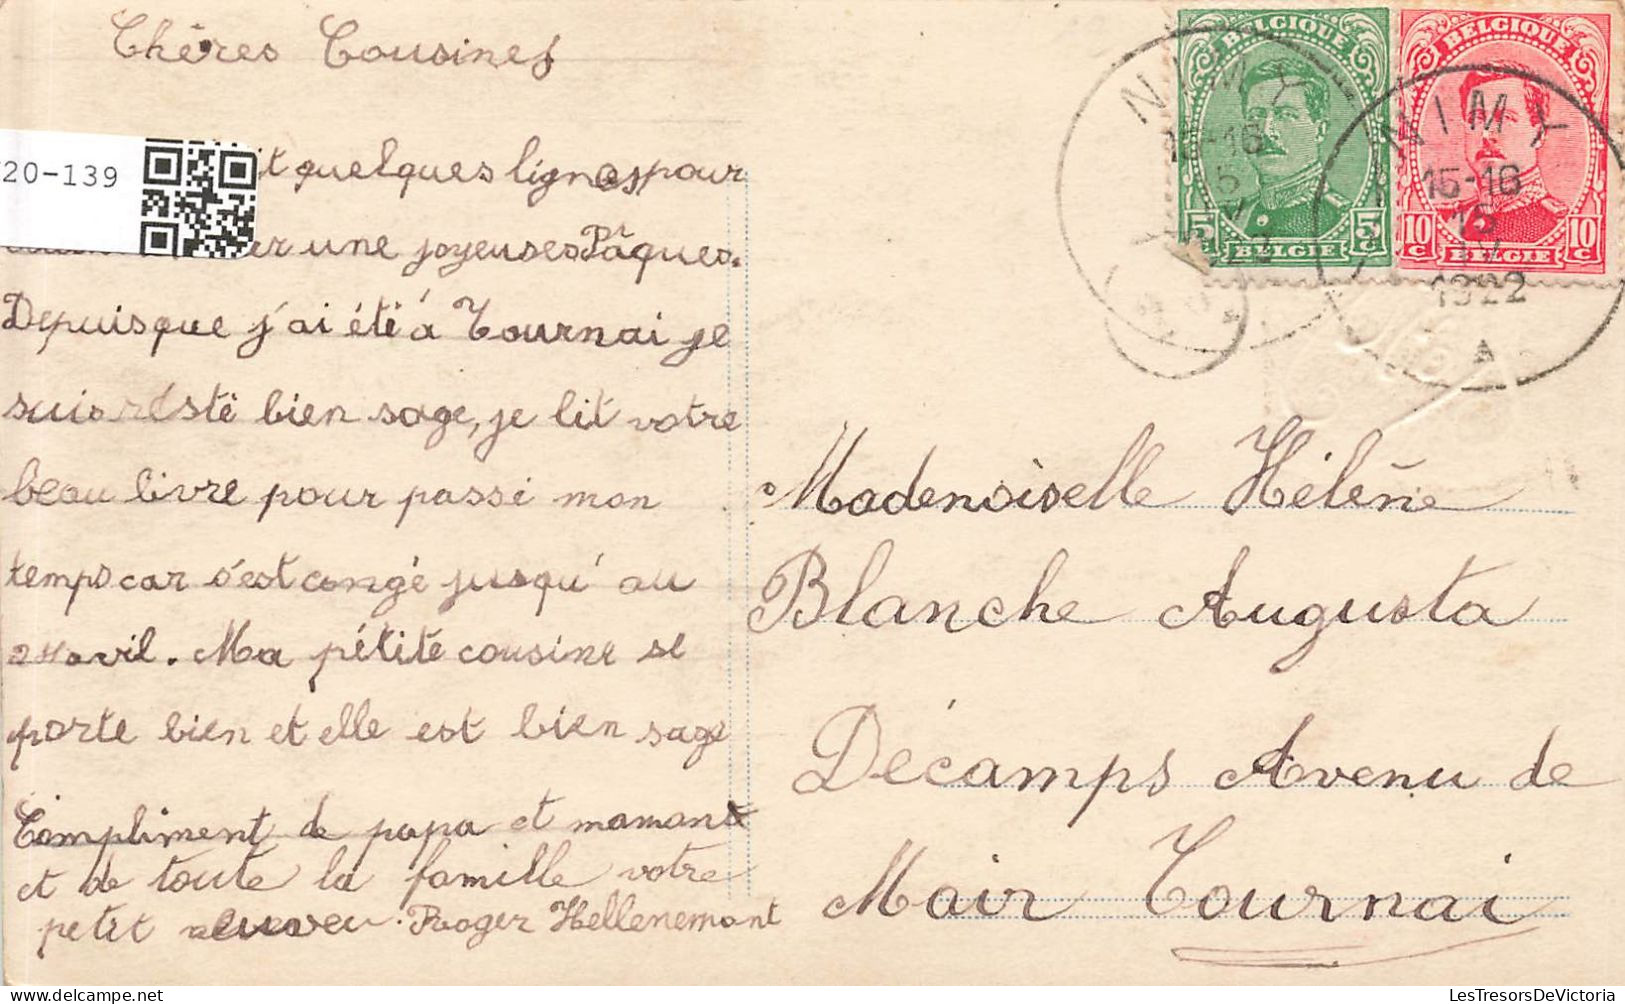 Chères Cousines
20-139
it quelques lignes pour
er une joyeuses Pâques.
Depuisque j'ai été à Tournai je
suis résté bien sage, je lit votre
beau livre pour passé mon
temps car s'est congé jusqu' au
24 avril. Ma pétite cousine se
porte bien et elle est bien sage
Compliment de papa et maman
et de toute la famille votre
petit neuveu. Roger Hellenemont
BELGIQUE
5c 5c
BELGIË
BELGIQUE
10c 10c
BELGIË
NIMY
15-16
NIMY
15-16
15
IV
1922
A
Mademoiselle Hélène
Blanche Augusta
Décamps Avenu de
Mair Tournai
LesTresorsDeVictoria